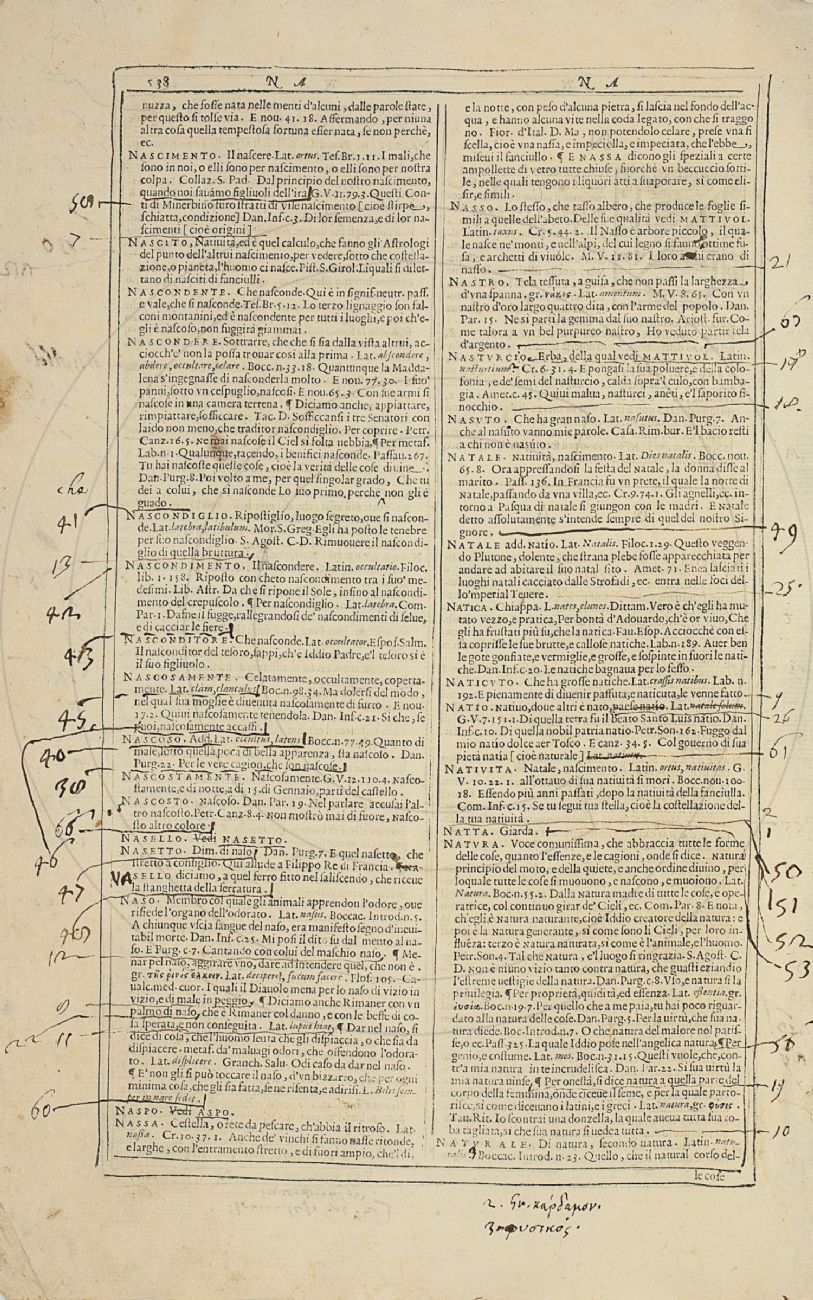 538 N A N A
nuzza, che fosse nata nelle menti d'alcuni, dalle parole state,
per questo si tolse via. E nou. 41. 18. Affermando, per niuna
altra cosa quella tempestosa fortuna esser nata, se non perchè,
ec.
NASCIMENTO. Il nascere. Lat. ortus. Tes. Br. 1. 11. I mali, che
sono in noi, o elli sono per nascimento, o elli sono per nostra
colpa. Collaz. S. Pad. Dal principio del nostro nascimento,
quando noi sauámo figliuoli dell'ira G. V. 11. 79. 3. Questi Con-
ti di Minerbino furo stratti di vile nascimento [cioè stirpe,
schiatta, condizione] Dan. Inf. c. 3. Di lor semenza, e di lor na-
scimenti [cioè origini]
NASCITO, Natiuità, ed è quel calculo, che fanno gli Astrologi
del punto dell'altrui nascimento, per vedere, sotto che costella-
zione, o pianeta, l'huomo ci nasce. Pist. S. Girol. Li quali si dilet-
tano di nasciti di fanciulli.
NASCONDENTE. Che nasconde. Qui è in signif. neutr. pass.
e vale, che si nasconde. Tes. Br. 5. 12. Lo terzo lignaggio son fal-
coni montanini, ed è nascondente per tutti i luoghi, e poi ch'e-
gli è nascoso, non fuggirà giammai.
NASCONDERE. Sottrarre, che che si sia dalla vista altrui, ac-
ciocch'e' non la possa trouar così alla prima. Lat. abscondere,
abdere, occultare, celare. Bocc. n. 33. 18. Quantunque la Madda-
lena s'ingegnasse di nasconderla molto. E nou. 77. 30. I suo'
panni, sotto vn cespuglio, nascosi. E nou. 65. 3. Con sue armi si
nascose in una camera terrena. ¶ Diciamo anche, appiattare,
rimpiattare, sofficcare. Tac. D. Sofficcansi i tre Senatori con
laido non meno, che traditor nascondiglio. Per coprire. Petr.
Canz. 16. 5. Ne mai nascose il Ciel sì folta nebbia. ¶ Per metaf.
Lab. n. 1. Qualunque, tacendo, i benifici nasconde. Passau. 267.
Tu hai nascoste queste cose, cioè la verità delle cose diuine.
Dan. Purg. 8. Poi volto a me, per quel singolar grado, Che tu
dei a colui, che sì nasconde Lo suo primo perchè non gli è
guado.
NASCONDIGLIO. Ripostiglio, luogo segreto, oue si nascon-
de. Lat. latebra, latibulum. Mor. S. Greg. Egli ha posto le tenebre
per suo nascondiglio. S. Agost. C. D. Rimuouere il nascondi-
glio di quella bruttura.
NASCONDIMENTO. Il nascondere. Latin. occultatio. Filoc.
lib. 1. 158. Riposto con cheto nascondimento tra i suo' me-
desimi. Lib. Astr. Da che si ripone il Sole, infino al nascondi-
mento del crepuscolo. ¶ Per nascondiglio. Lat. latebra. Com.
Par. 1. Dafne il fugge, rallegrandosi de' nascondimenti di selue,
e di cacciar le fiere.
NASCONDITORE. Che nasconde. Lat. occultator. Espos. Salm.
Il nasconditor del tesoro, sappi, ch'è Iddio Padre, e'l tesoro si è
il suo figliuolo.
NASCOSAMENTE. Celatamente, occultamente, coperta-
mente. Lat. clam, clanculum. Boc. n. 98. 34. Ma dolersi del modo,
nel qual sua moglie è diuenuta nascosamente di furto. E nou.
17. 2. Quiui nascosamente tenendola. Dan. Inf. c. 21. Si che, se
puoi, nascosamente accaffi.
NASCOSO. Add. Lat. occultus, latens. Bocc. n. 77. 49. Quanto di
male, sotto quella poca di bella apparenza, sta nascoso. Dan.
Purg. 22. Per le vere cagion, che son nascose.
NASCOSTAMENTE. Nascosamente. G. V. 12. 110. 4. Nasco-
stamente, e di notte, a dì 15. di Gennaio, partì del castello.
NASCOSTO. Nascoso. Dan. Par. 19. Nel parlare accusai l'al-
tro nascosto. Petr. Canz. 8. 4. Non mostrò mai di fuore, nasco-
sto altro colore.
NASELLO. Vedi NASETTO.
NASETTO. Dim. di naso. Dan. Purg. 7. E quel nasetto, che
stretto a consiglio. Qui allude a Filippo Re di Francia.
NASELLO diciamo, a quel ferro fitto nel saliscendo, che riceue
la stanghetta della serratura.
NASO. Membro col quale gli animali apprendon l'odore, oue
risiede l'organo dell'odorato. Lat. nasus. Boccac. Introd. n. 5.
A chiunque vscia sangue del naso, era manifesto segno d'ineui-
tabil morte. Dan. Inf. c. 25. Mi posi il dito su dal mento al na-
so. E Purg. c. 7. Cantando con colui del maschio naso. ¶ Me-
nar pel naso, aggirare vno, dare ad intendere quel, che non è.
gr. τῆς ῥινὸς ἕλκειν. Lat. decipere, fucum facere. Flos. 105. Ca-
ualc. med. cuor. I quali il Diauolo mena per lo naso di vizio in
vizio, e di male in peggio. ¶ Diciamo anche Rimaner con vn
palmo di naso, che è Rimaner col danno, e con le beffe di co-
sa sperata, e non conseguita. Lat. lupus hiat, ¶ Dar nel naso, si
dice di cosa, che l'huomo senta che gli dispiaccia, o che sia da
dispiacere. metaf. da' maluagi odori, che offendono l'odora-
to. Lat. displicere. Granch. Salu. Odi caso da dar nel naso.
¶ E' non gli si può toccare il naso, d'vn bizzarro, che per ogni
minima cosa, che gli sia fatta, se ne risenta, e adirisi. L. Bilis sem-
per in nare sedet.
NASPO. Vedi ASPO.
NASSA. Cestella, o rete da pescare, ch'abbia il ritroso. Lat.
nassa. Cr. 10. 37. 1. Anche de' vinchi si fanno nasse ritonde,
e larghe, con l'entramento stretto, e di fuori ampio, che'l dì,
e la notte, con peso d'alcuna pietra, si lascia nel fondo dell'ac-
qua, e hanno alcuna vite nella coda legato, con che si traggo
no. Fior. d'Ital. D. Ma, non potendolo celare, prese vna fi
scella, cioè vna nassa, e impeciolla, e impeciata, che l'ebbe,
misevi il fanciullo. ¶ E NASSA dicono gli speziali a certe
ampollette di vetro tutte chiuse, fuorchè vn beccuccio sotti-
le, nelle quali tengono i liquori atti a suaporare, sì come elì-
sir, e simili.
NASSO. Lo stesso, che tasso albero, che produce le foglie si-
mili a quelle dell'abeto. Delle sue qualità vedi MATTIVOL.
Latin. taxus. Cr. 5. 44. 2. Il Nasso è arbore piccolo, il qua-
le nasce ne' monti, e nell'alpi, del cui legno si fanno ottime fu-
sa, e archetti di viuole. M. V. 11. 81. I loro archi erano di
nasso.
NASTRO. Tela tessuta, a guisa, che non passi la larghezza
d'vna spanna. gr. Lat. amentum. M. V. 8. 65. Con vn
nastro d'oro largo quattro dita, con l'arme del popolo. Dan.
Par. 15. Ne si partì la gemma dal suo nastro. Ariost. fur. Co-
me talora a vn bel purpureo nastro, Ho veduto partir tela
d'argento.
NASTVRCIO. Erba, della qual vedi MATTIVOL. Latin.
nasturtium. Cr. 6. 31. 4. E pongasi la sua poluere, e della colo-
fonia, e de' semi del nasturcio, calda sopra'l culo, con bamba-
gia. Amet. c. 45. Quiui malua, nasturci, aneti, e'l saporito fi
nocchio.
NASVTO. Che ha gran naso. Lat. nasutus. Dan. Purg. 7. An-
che al nasuto vanno mie parole. Casa. Rim. bur. E'l bacio resti
a chi non è nasuto.
NATALE. Natiuità, nascimento. Lat. Dies natalis. Bocc. nou.
65. 8. Ora appressandosi la festa del Natale, la donna disse al
marito. Pass. 136. In Francia fu vn prete, il quale la notte di
Natale, passando da vna villa, ec. Cr. 9. 74. 1. Gli agnelli, ec. in-
torno a Pasqua di natale si giungon con le madri. E Natale
detto assolutamente s'intende sempre di quel del nostro Si-
gnore.
NATALE add. Natio. Lat. Natalis. Filoc. 1. 29. Questo veggen-
do Plutone, dolente, che strana plebe fosse apparecchiata per
andare ad abitare il suo natal sito. Amet. 71. Enea lasciati i
luoghi natali cacciato dalle Strofadi, ec. entra nelle foci del-
lo'mperial Teuere.
NATICA. Chiappa. L. nates, clunes. Dittam. Vero è ch'egli ha mu-
tato vezzo, e pratica, Per bontà d'Adouardo, ch'è or viuo, Che
gli ha frustati più fu, che la natica. Fau. Esop. Acciocchè con es-
sa coprisse le sue brutte, e callose natiche. Lab. n. 189. Auer ben
le gote gonfiate, e vermiglie, e grosse, e sospinte in fuori le nati-
che. Dan. Inf. c. 20. Le natiche bagnaua per lo fesso.
NATICVTO. Che ha grosse natiche. Lat. crassis natibus. Lab. n.
192. E pienamente di diuenir passuta, e naticuta, le venne fatto.
NATIO. Natiuo, doue altri è nato, paese natio. Lat. natale solum.
G. V. 7. 151. 1. Di quella terra fu il Beato Santo Luis natio. Dan.
Inf. c. 10. Di quella nobil patria natio. Petr. Son. 162. Fuggo dal
mio natio dolce aer Tosco. E canz. 34. 5. Col gouerno di sua
pietà natia [cioè naturale]
NATIVITA. Natale, nascimento. Latin. ortus, natiuitas. G.
V. 10. 22. 1. all'ottauo di sua natiuità si morì. Bocc. nou. 100.
18. Essendo più anni passati, dopo la natiuità della fanciulla.
Com. Inf. c. 15. Se tu segui tua stella, cioè la costellazione del-
la tua natiuità.
NATTA. Giarda.
NATVRA. Voce comunissima, che abbraccia tutte le forme
delle cose, quanto l'essenze, e le cagioni, onde si dice. Natura
principio del moto, e della quiete, e anche ordine diuino, per
loquale tutte le cose si muouono, e nascono, e muoiono. Lat.
Natura. Boc. n. 55. 2. Dalla Natura madre di tutte le cose, e ope-
ratrice, col continuo girar de' Cieli, ec. Com. Par. 8. E nota,
ch'egli è Natura naturante, cioè Iddio creatore della natura: e
poi è la Natura generante, sì come sono li Cieli, per loro in-
fluēza: terzo è Natura naturata, sì come è l'animale, e l'huomo.
Petr. Son. 4. Tal che Natura, e'l luogo si ringrazia. S. Agost. C.
D. Non è niuno vizio tanto contra natura, che guasti eziandio
l'estreme uestigie della natura. Dan. Purg. c. 8. Vso, e natura sì la
priuilegia. ¶ Per proprietà, quidità, ed essenza. Lat. essentia. gr.
οὐσία. Boc. n. 19. 7. Per quello che a me paia, tu hai poco riguar-
dato alla natura delle cose. Dan. Purg. 5. Per la uirtù, che sua na-
tura diede. Boc. Introd. n. 7. O che natura del malore nol patis-
se, o ec. Pass. 325. La quale Iddio pose nell'angelica natura. ¶ Per
genio, e costume. Lat. mos. Boc. n. 31. 15. Questi vuole, che, con-
tr'a mia natura in te incrudelisca. Dan. Par. 22. Si sua uirtù la
mia natura uinse. ¶ Per onestà, si dice natura a quella parte del
corpo della femmina, onde riceue il seme, e per la quale parto-
risce, sì come diceuano i latini, e i greci. Lat. natura, gr. φύσις.
Tau. Rit. Io scontrai una donzella, la quale auea tutta sua ro-
ba tagliata, sì che sua natura si uedea tutta.
NATVRALE. Di natura, secondo natura. Latin. natu-
ralis. Boccac. Introd. n. 23. Quello, che il natural corso del-
le cose
che
41
13
42
43
45
40
38
66
46
47
12
9
11
60
7
21
63
18
49
25
9
26
61
2
1
50
51
52
53
58
19
10
VA
2. Gr. κάρδαμον.
3 φυσικός.